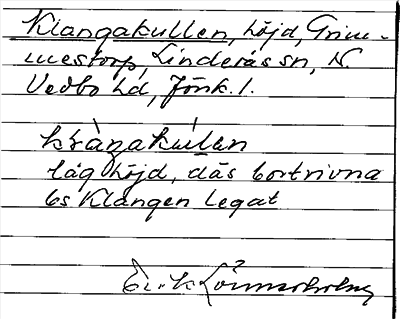 Klangakullen, höjd, Grim-
mestorp, Linderås sn, N.
Vedbo hd, Jönk. l.
låg höjd, däs bortrivna
bs Klangen legat
Erik Lönnerholm